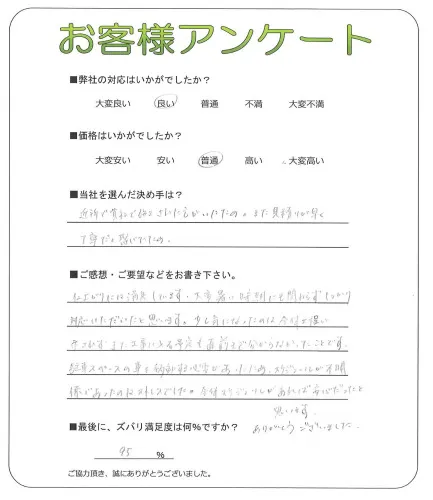 お客様アンケート
■弊社の対応はいかがでしたか？
大変良い 良い 普通 不満 大変不満
■価格はいかがでしたか？
大変安い 安い 普通 高い 大変高い
■当社を選んだ決め手は？
近所で貴社で施工された方がいたため。また見積りが早く
丁寧だと感じたため。
■ご感想・ご要望などをお書き下さい。
には満足しています。大変暑い時期にも関わらずしっかり
対応いただいたと思います。少し気になったのは
またエ事に入る予定も直前まで分からなかったことです。
駐車スペースの事も あったため、スケジュールが不明
様であったのは 今後スケジュールがあれば安心だったと
思います。
ありがとうございました。
■最後に、ズバリ満足度は何%ですか？
95 %
ご協力頂き、誠にありがとうございました。